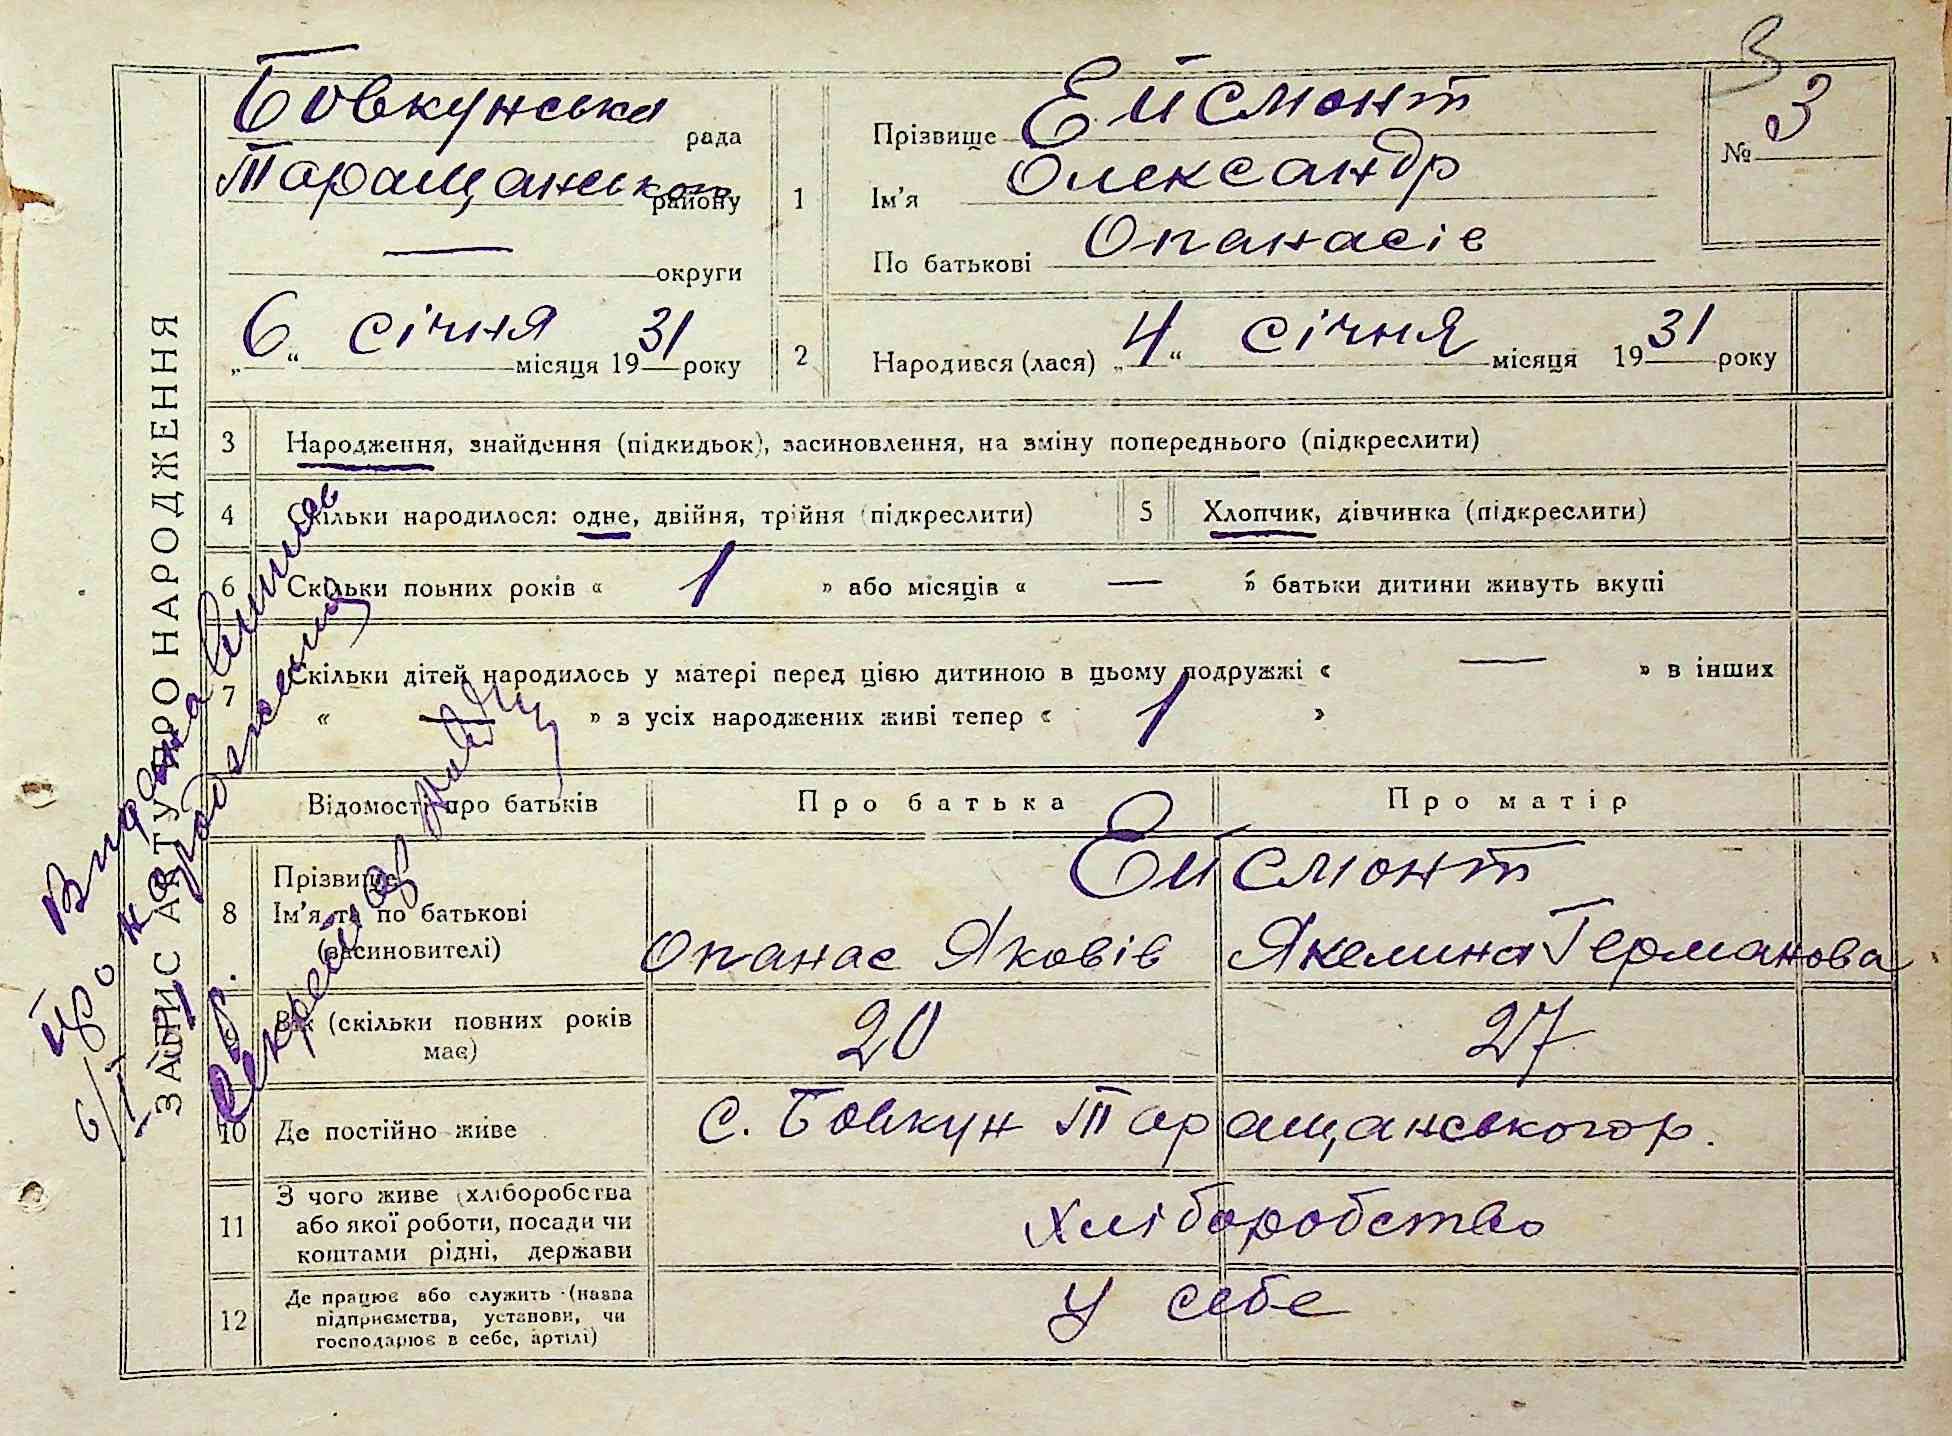 3
ЗАПИС АКТУ ПРО НАРОДЖЕННЯ
Бовкунська рада
Таращанськог району
— округи
„6“ січня місяця 1931 року
№ 3
1 Прізвище Ейсмонт
Ім'я Олександр
По батькові Опанасів
2 Народився (лася) „4“ січня місяця 1931 року
3 Народження, знайдення (підкидьок), засиновлення, на зміну попереднього (підкреслити)
4 Скільки народилося: одне, двійня, трійня (підкреслити) 5 Хлопчик, дівчинка (підкреслити)
6 Скільки повних років « 1 » або місяців « — » батьки дитини живуть вкупі
7 Скільки дітей народилось у матері перед цією дитиною в цьому подружжі « — » в інших
« — » з усіх народжених живі тепер « 1 »
Відомості про батьків Про батька Про матір
8 Прізвище Ейсмонт
Ім'я та по батькові
(засиновителі) Опанас Яковів Якелина Германова
9 Вік (скільки повних років
має) 20 27
10 Де постійно живе с. Бовкун Таращанського р.
11 З чого живе (хліборобства
або якої роботи, посади чи
коштами рідні, держави хліборобство
12 Де працює або служить (назва
підприємства, установи, чи
господарює в себе, артілі) у себе
Видана
Про народження
6/I
Секретар